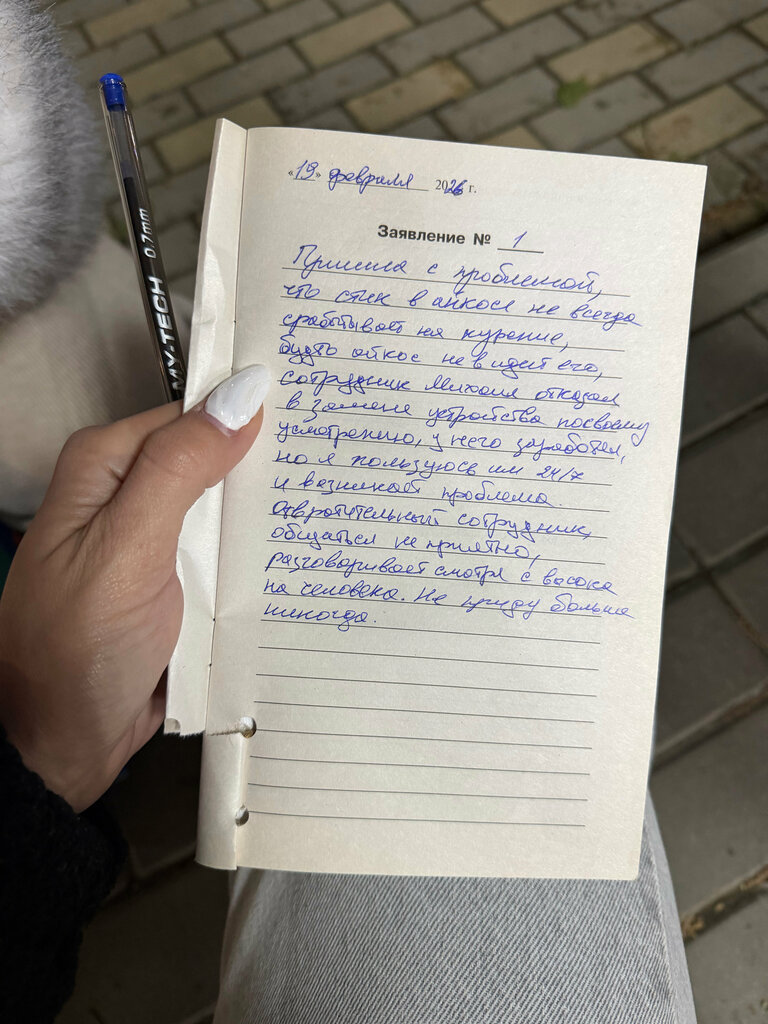 MY-TECH 0.7mm
«19» февраля 2026 г.
Заявление № 1
Пришла с проблемой,
что стик в айкосе не всегда
срабатывает на курение,
будто айкос не видит его,
сотрудник Михаил отказал
в замене устройства по своему
усмотрению, у него заработал,
но я пользуюсь им 24/7
и возникает проблема.
Отвратительный сотрудник,
общаться не приятно,
разговаривает смотря с высока
на человека. Не приду больше
никогда.